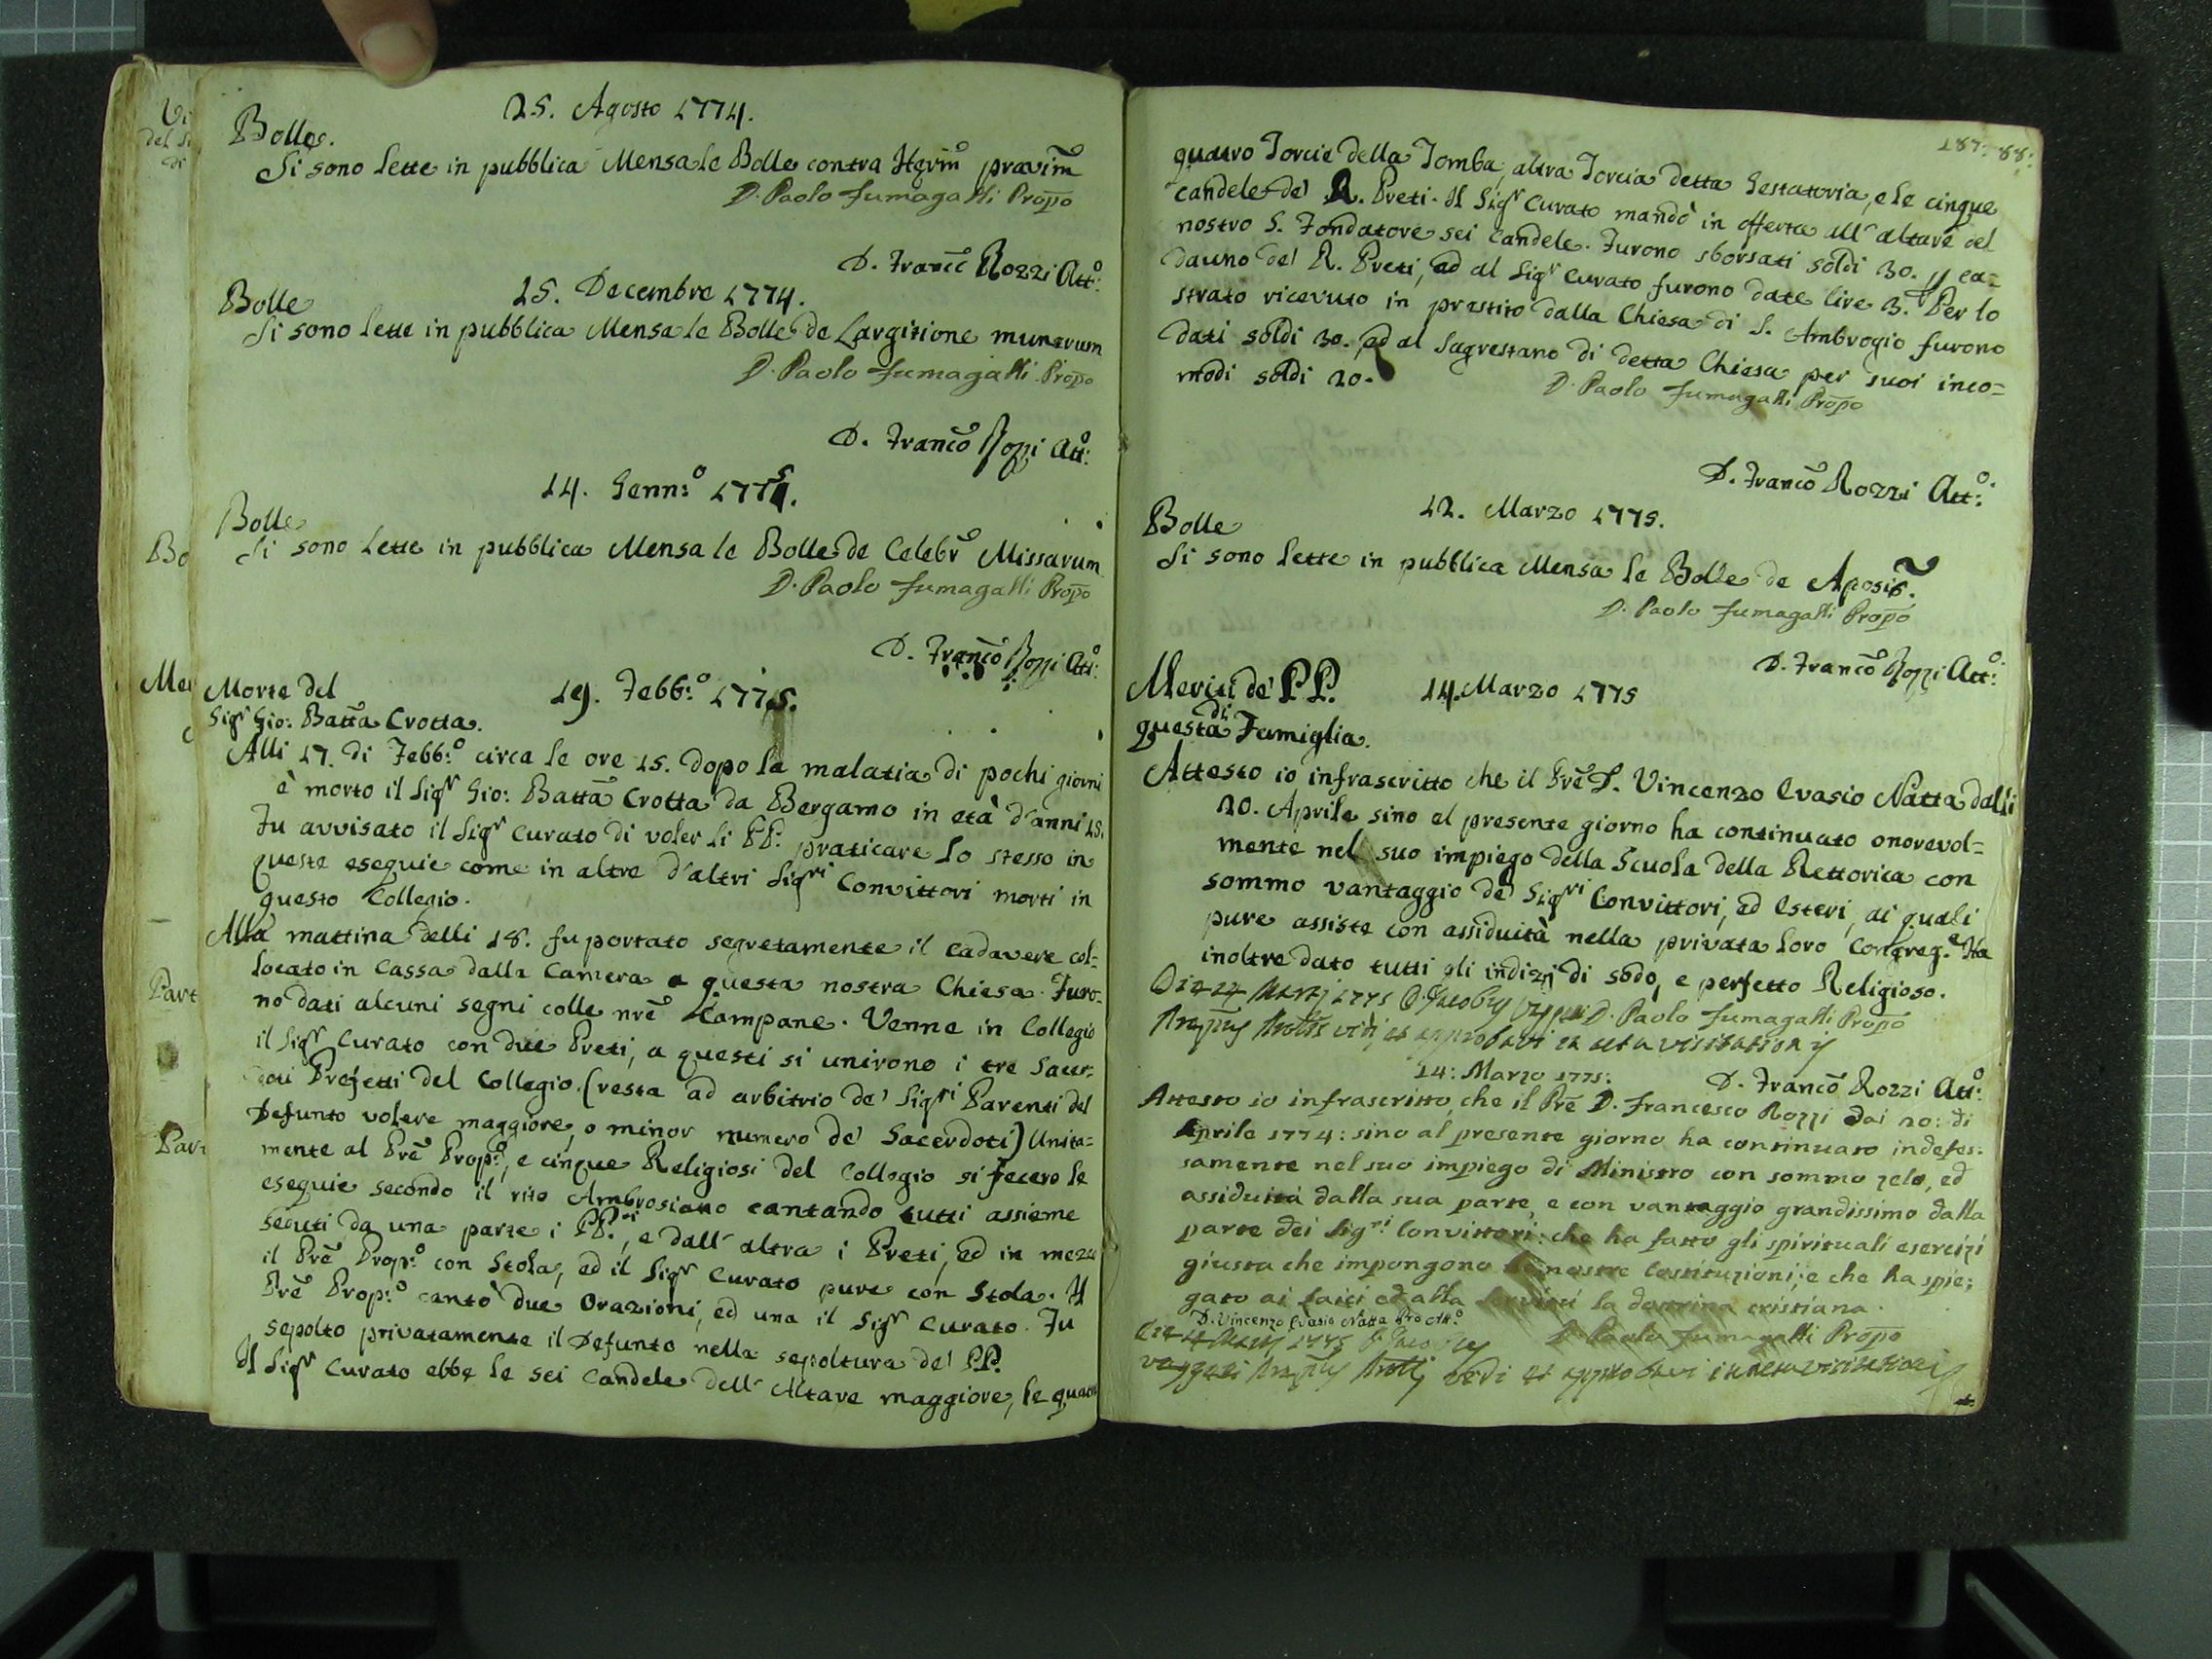 25. Agosto 1774.
Bolle.
Si sono lette in pubblica Mensa le Bolle contra Hęrim̃ pravim̃
D. Paolo Fumagalli Propõ
D. Franc̃ Rozzi Att:º
15. Decembre 1774.
Bolle
Si sono lette in pubblica Mensa le Bolle de Largitione munerum
D. Paolo Fumagalli Propõ
D. Francõ Rozzi Att:º
14. Genn:º 1775.
Bolle
Si sono lette in pubblica Mensa le Bolle de Celebrº Missarum
D. Paolo Fumagalli Propõ
D. Francõ Rozzi Att:º
Morte del
Sigr Gio: Battã Crotta.
19. Febb:º 1775.
Alli 17. di Febb:º circa le ore 15. dopo la malatia di pochi giorni
è morto il Sigr Gio: Battã Crotta da Bergamo in età d'anni 15.
Fu avvisato il Sigr Curato di voler li PP. praticare lo stesso in
queste esequie come in altre d'altri Sigri Convittori morti in
questo Collegio.
Alla mattina delli 18. fu portato segretamente il cadavere col=
locato in Cassa dalla Camera a questa nostra Chiesa. Furo=
no dati alcuni segni colle nrẽ Campane. Venne in Collegio
il Sigr Curato con due Preti, a questi si unirono i tre Sacer=
doti Prefetti del Collegio. (resta ad arbitrio de' Sigri Parenti del
Defunto volere maggiore, o minor numero de' Sacerdoti) Unita=
mente al Prẽ Prop:º, e cinque Religiosi del Collegio si fecero le
esequie secondo il rito Ambrosiano cantando tutti assieme
seduti da una parte i PP.ri, e dall' altra i Preti, ed in mezo
il Prẽ Prop:º con Stola, ed il Sigr Curato pure con Stola. Il
Prẽ Prop:º cantò due Orazioni, ed una il Sigr Curato. Fu
sepolto privatamente il Defunto nella sepoltura de' PP.
Il Sigr Curato ebbe le sei Candele dell' Altare maggiore, le quatro
187: 88:
quatro Torcie della Tomba, altra Torcia detta Gestatoria, e le cinque
candele de' R. Preti. Il Sigr Curato mandò in offerta all' altare del
nostro S. Fondatore sei Candele. Furono sborsati soldi 30. p ca=
dauno de' R. Preti, ed al Sigr Curato furono date lire 3. Per lo
strato ricevuto in prestito dalla Chiesa di S. Ambrogio furono
dati soldi 30. ed al Sagrestano di detta Chiesa per suoi inco=
modi soldi 20.
D. Paolo Fumagalli Propõ
D. Francõ Rozzi Att:º
12. Marzo 1775.
Bolle
Si sono lette in pubblica Mensa le Bolle de Aposis̃.
D. Paolo Fumagalli Propõ
D. Francõ Rozzi Att:º
Meriti de' PP.
di
questa Famiglia.
14. Marzo 1775
Attesto io infrascritto che il Prẽ D. Vincenzo Evasio Natta dalli
20. Aprile sino al presente giorno ha continuato onorevol=
mente nel suo impiego della Scuola della Rettorica con
sommo vantaggio de' Sigri Convittori, ed Esteri, ai quali
pure assiste con assiduità nella privata loro Congreg.e Ha
inoltre dato tutti gli indizj di sodo, e perfetto Religioso.
D. Paolo Fumagalli Propõ
vidi et approbavi in actu visitationis
14: Marzo 1775:
D. Francõ Rozzi Att:º
Attesto io infrascritto, che il Prẽ D. Francesco Rozzi dai 20: di
Aprile 1774: sino al presente giorno ha continuato indefes:
samente nel suo impiego di Ministro con sommo zelo, ed
assiduità dalla sua parte, e con vantaggio grandissimo dalla
parte dei Sigri Convittori: che ha fatto gli spirituali esercizi
giusta che impongono le nostre Costituzioni; e che ha spie:
gato ai Laici ed alla Servitù la dottrina cristiana.
D. Vincenzo Evasio Natta Pro Att:º
D. Paolo Fumagalli Propõ
vidi et approbavi in actu visitationis